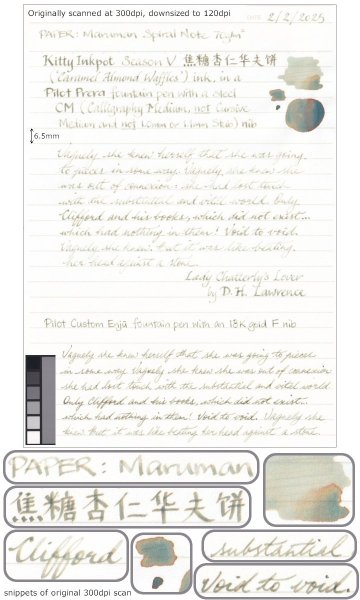 Originally scanned at 300dpi, downsized to 120dpi
DATE 2/2/2025
PAPER: Maruman Spiral Note 7
Kitty Inkpot Season V 焦糖杏仁华夫饼
("Caramel Almond Waffles") ink, in a
Pilot Prera fountain pen with a steel
CM (Calligraphy Medium, not Cursive
Medium and not 1.0mm or 1.1mm Stub) nib
6.5mm
Vaguely she knew herself that she was going
to pieces in some way. Vaguely she knew she
was out of connexion: she had lost touch
with the substantial and vital world. Only
Clifford and his books, which did not exist...
which had nothing in them! Void to void.
Vaguely she knew. but it was like beating
her head against a stone.
Lady Chatterly's Lover
by D. H. Lawrence
Pilot Custom Enjū fountain pen with an 18k gold F nib
Vaguely she knew herself that she was going to pieces
in some way. Vaguely she knew she was out of connexion
she had lost touch with the substantial and vital world.
Only Clifford and his books, which did not exist...
which had nothing in them! Void to void. Vaguely she
knew. But it was like beating her head against a stone.
PAPER: Maruman
焦糖杏仁华夫饼
Clifford
substantial
Void to void.
snippets of original 300dpi scan